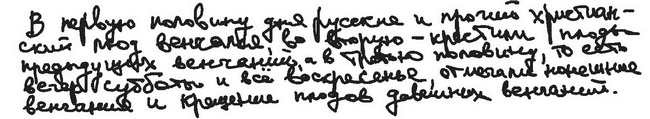 В первую половину дня русские и прочий христиан-
ский люд венчался, во вторую - крестили плоды
предыдущих венчаний, а в третью половину, то есть
вечер субботы и всё воскресенье, отмечали нонешние
венчания и крещение плодов давешних венчаний.